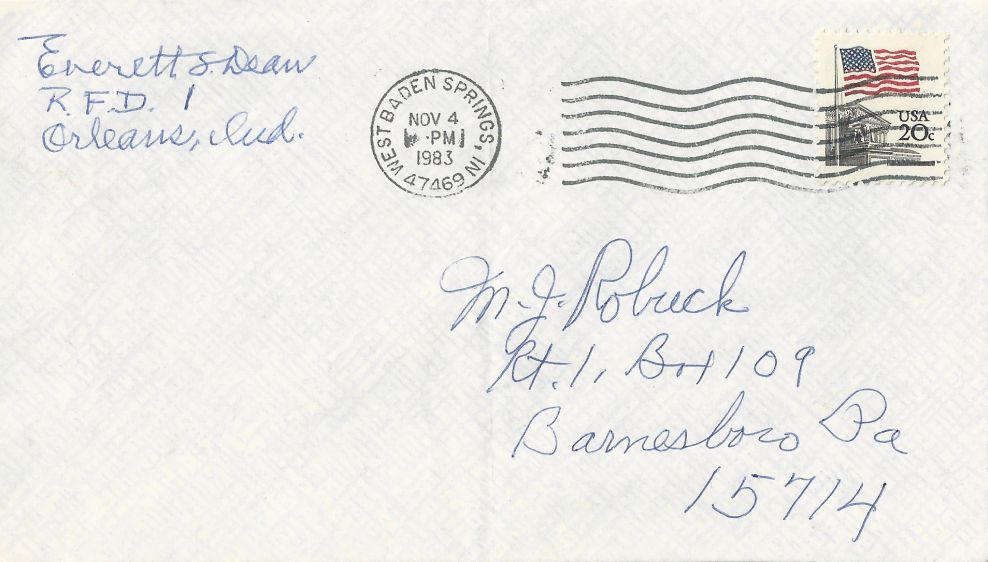 Everett S. Dean
R.F.D. 1
Orleans, Ind.
WEST BADEN SPRINGS, IN
47469
NOV 4
PM
1983
USA
20c
M. J. Robuck
Rt. 1, Box 109
Barnesboro Pa
15714